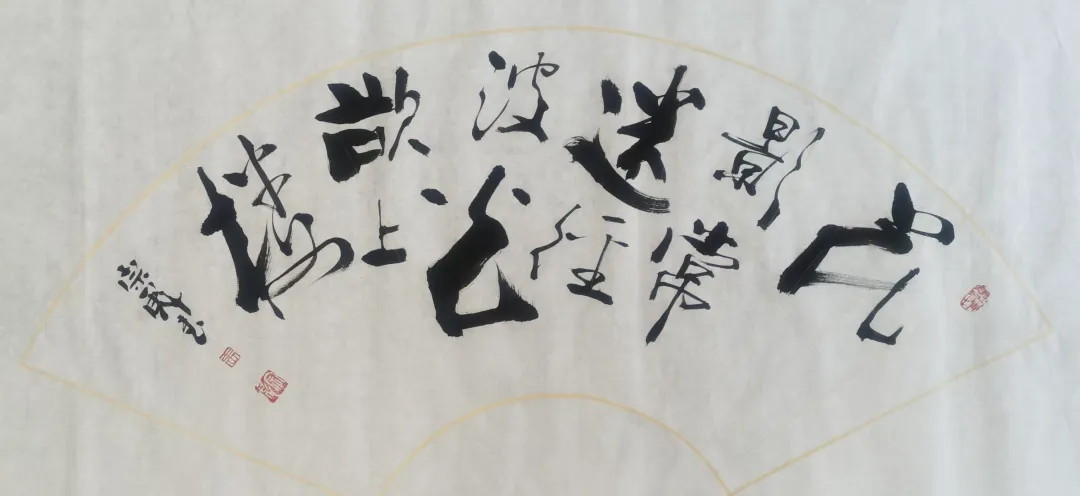 花
影常
迷径
波光
欲上
楼